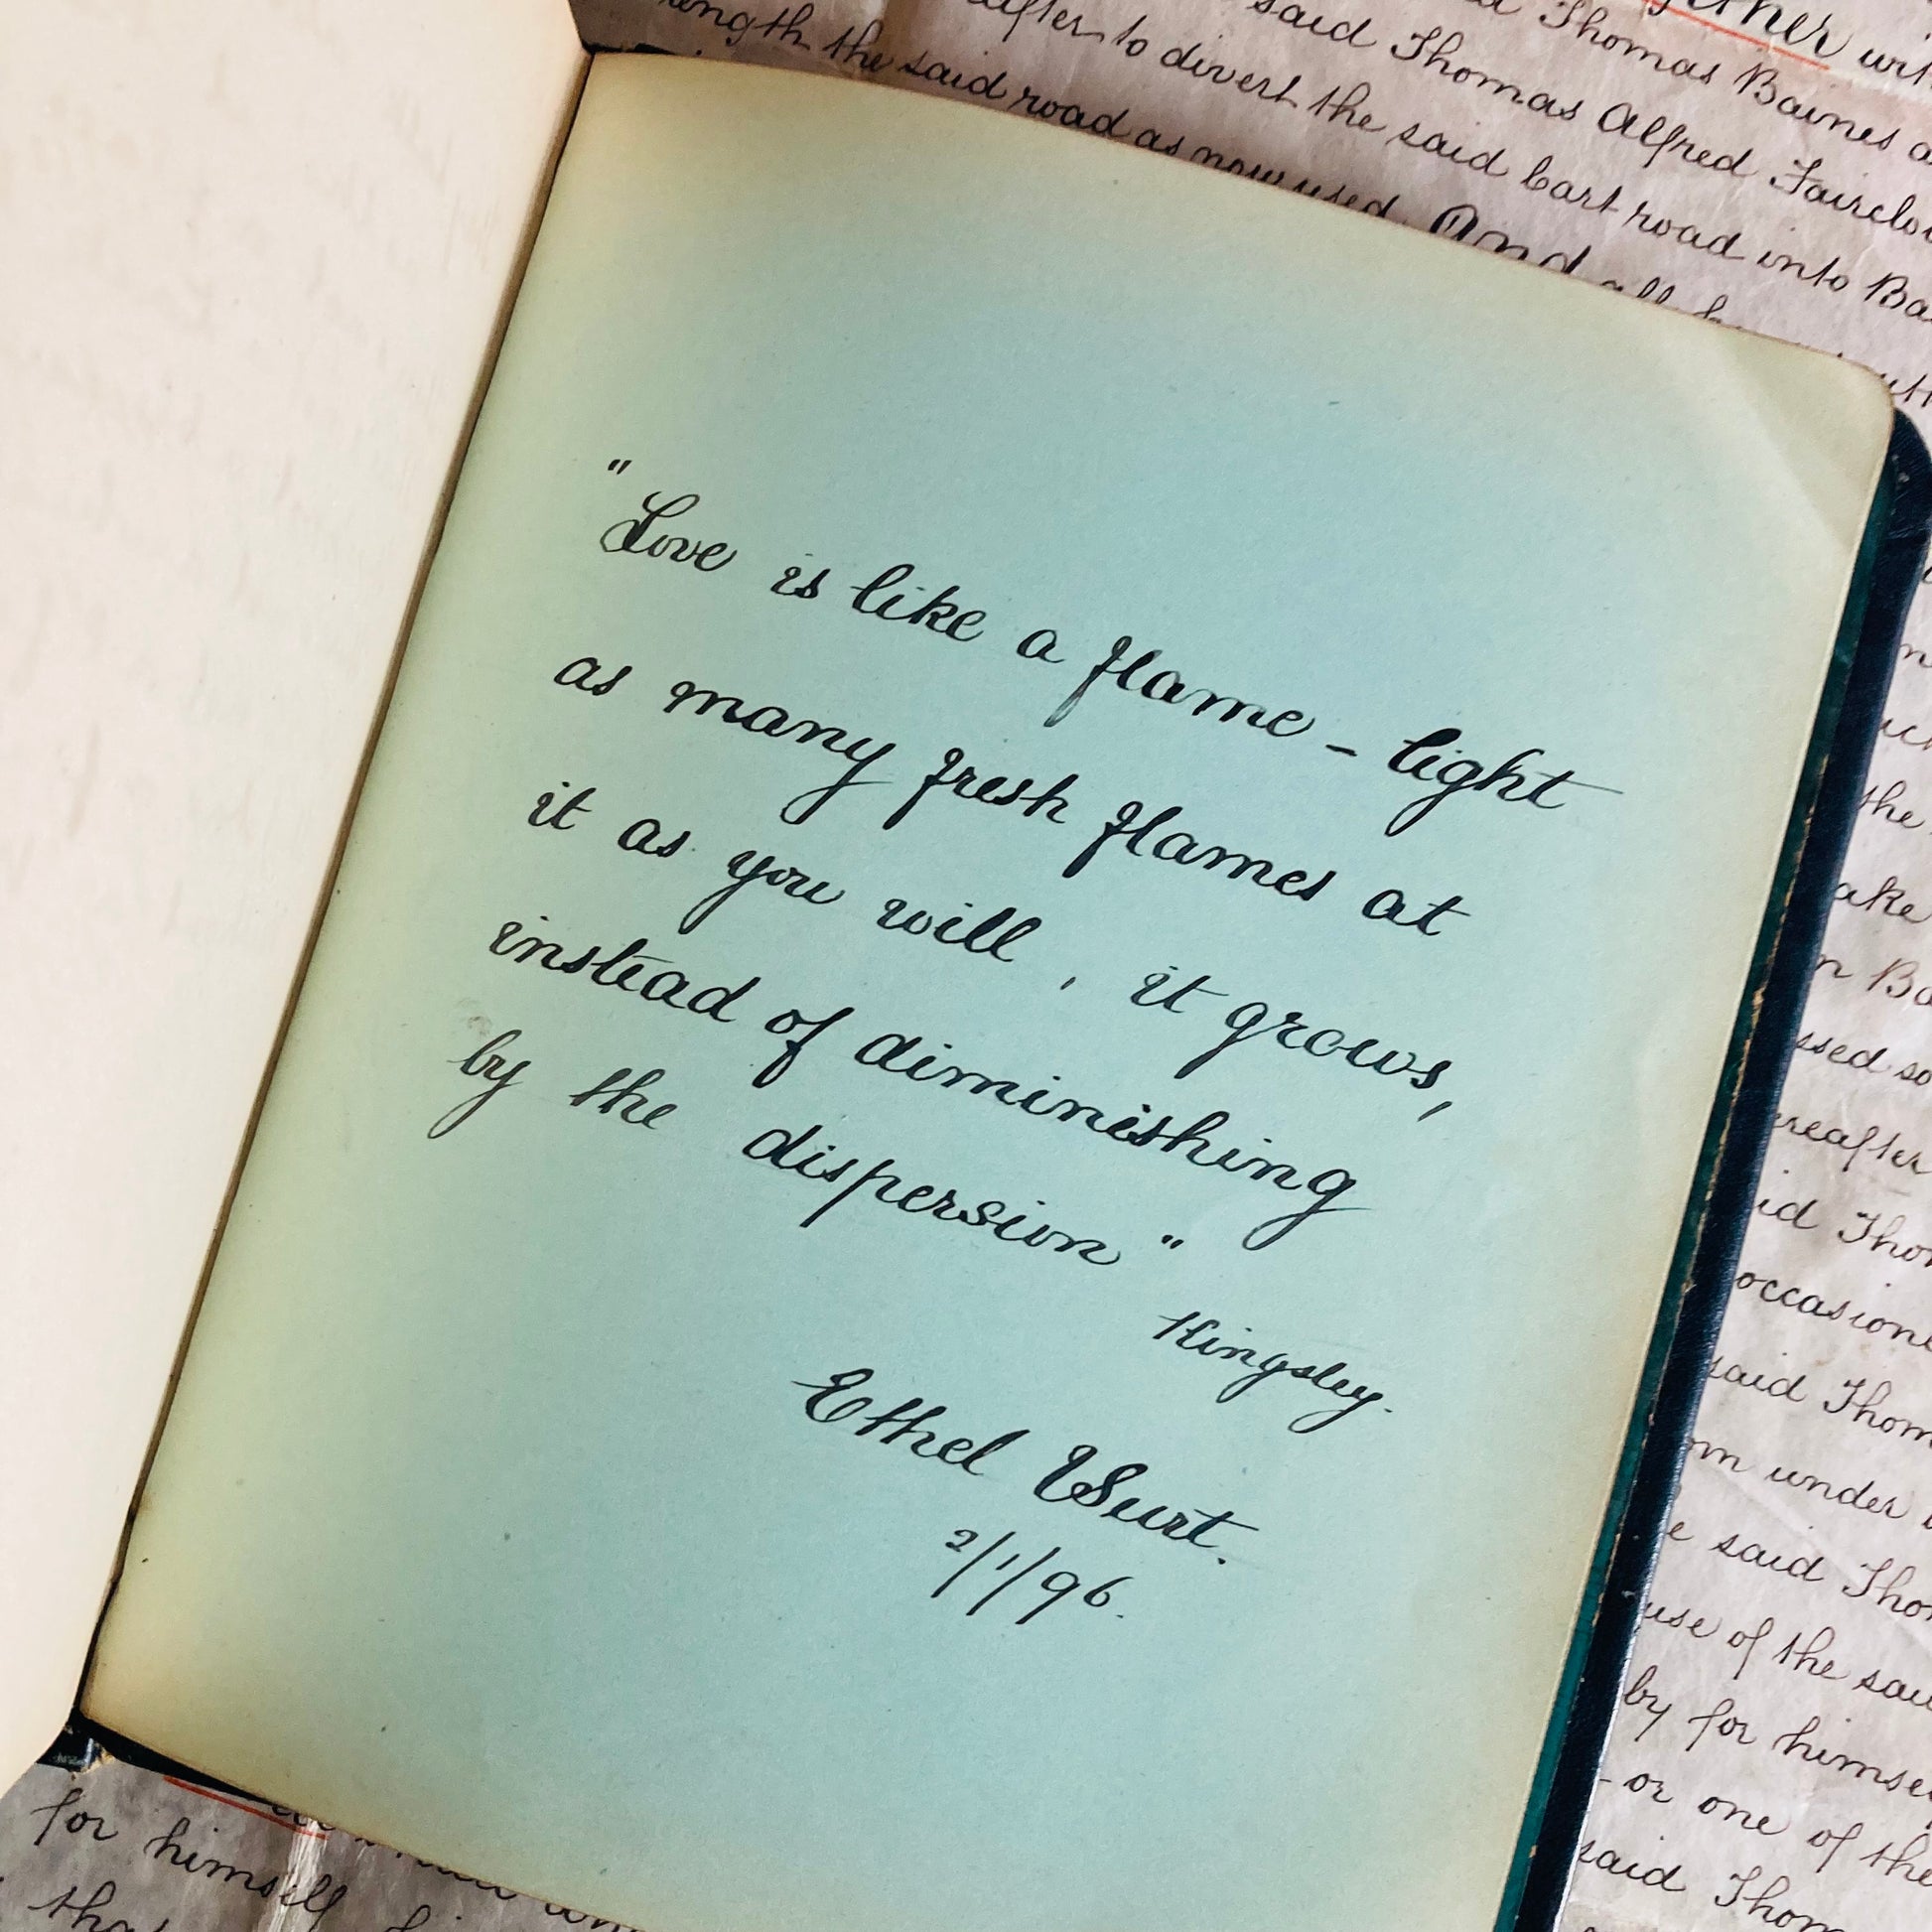 ther
Thomas Baines
said Thomas Alfred
after to divert the said Cart road into
the said road as now used. And all
"
Love is like a flame - light
as many fresh flames at
it as you will, it grows,
instead of diminishing
by the dispersion"
Kingsley.
Ethel Burt.
2/1/96.
the
occasion
said Thom
under
said Tho
use of the
by for himse
or one of the
said Thom
for himself
tha